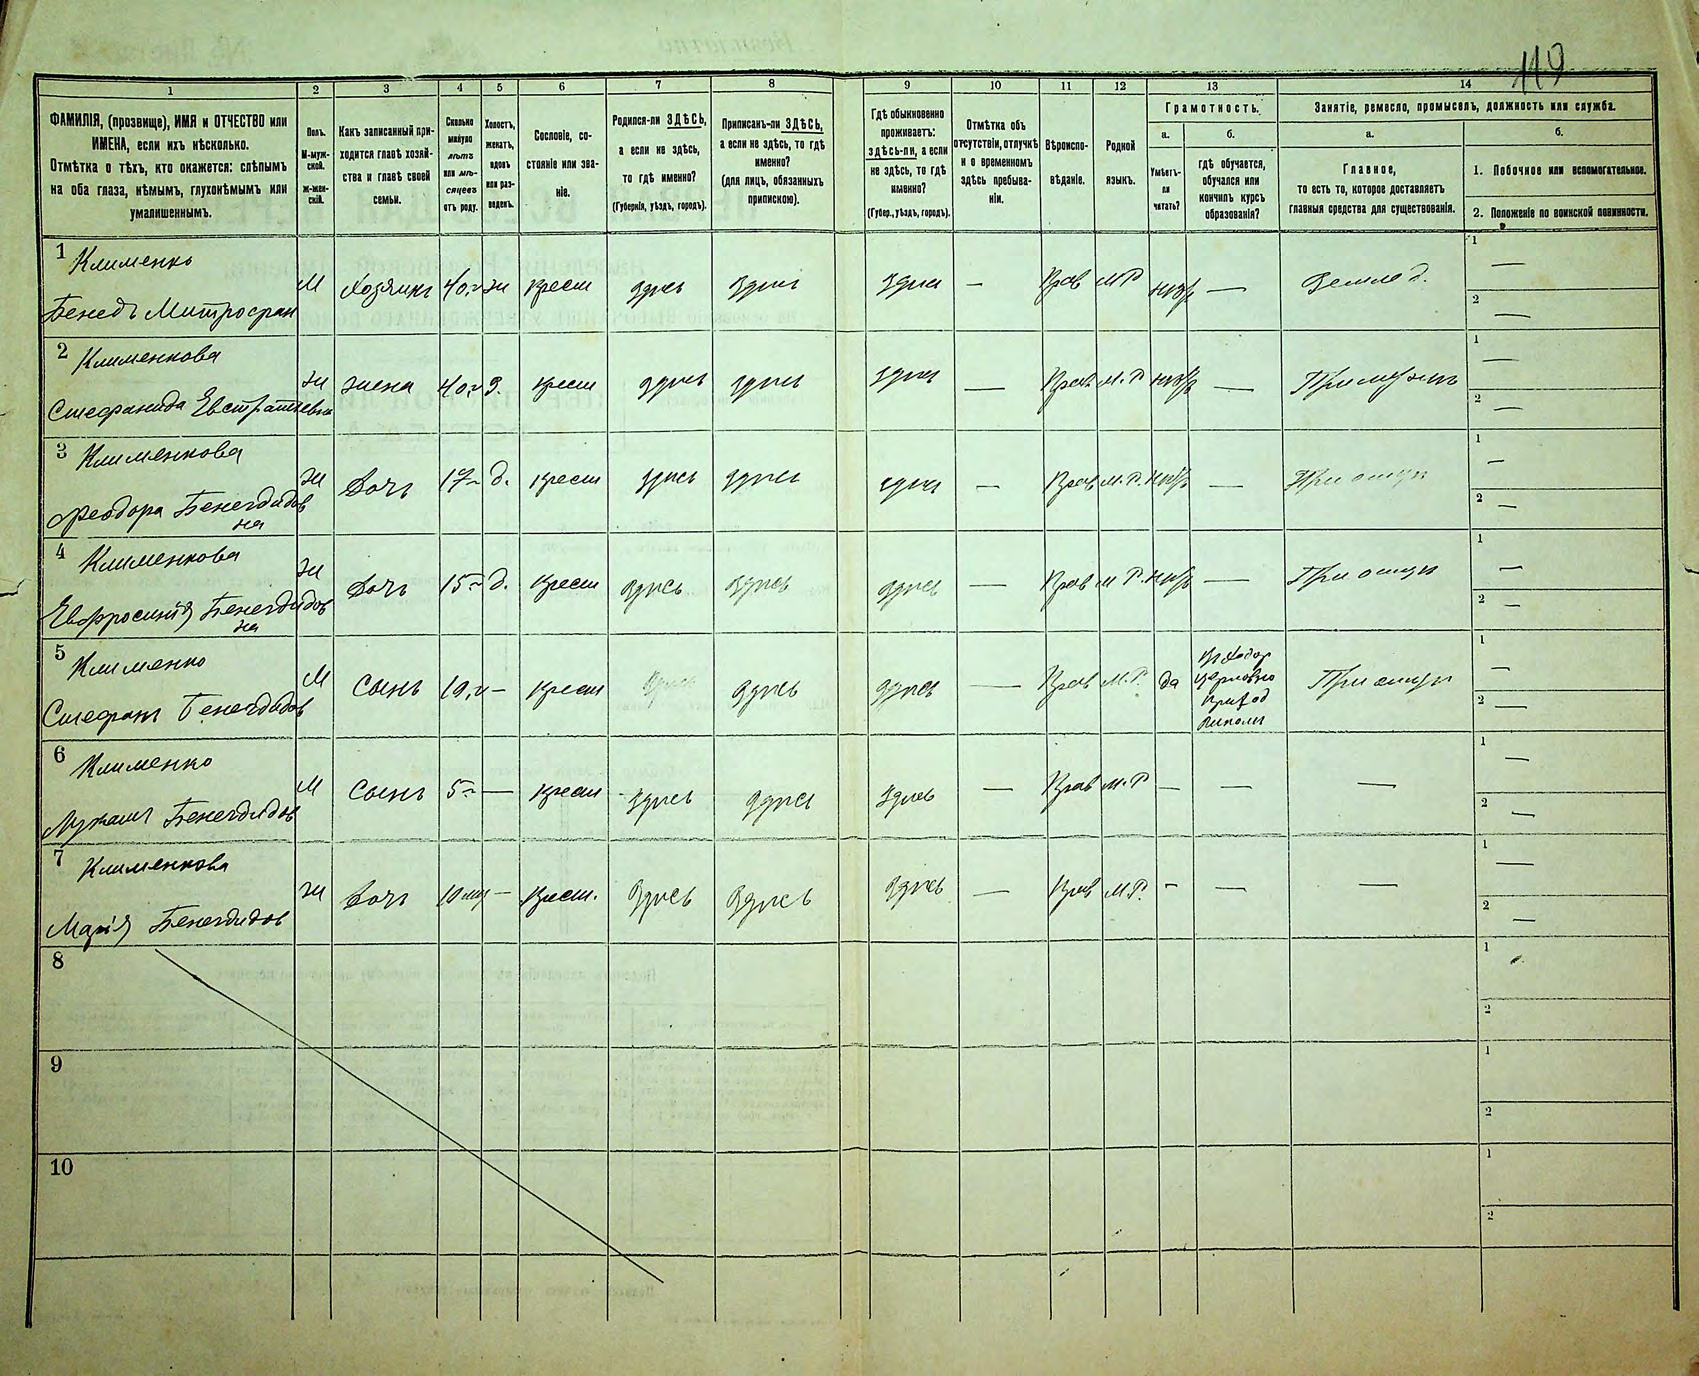 119
1 2 3 4 5 6 7 8 9 10 11 12 13 14
ФАМИЛІЯ, (прозвище), ИМЯ и ОТЧЕСТВО или
ИМЕНА, если ихъ нѣсколько.
Отмѣтка о тѣхъ, кто окажется: слѣпымъ
на оба глаза, нѣмымъ, глухонѣмымъ или
умалишеннымъ.
Полъ.
М-муж-
ской.
Ж-жен-
скій.
Какъ записанный при-
ходится главѣ хозяй-
ства и главѣ своей
семьи.
Сколько
минуло
лѣтъ
или мѣ-
сяцевъ
отъ роду.
Холостъ,
женатъ,
вдовъ
или раз-
веденъ.
Сословіе, со-
стояніе или зва-
ніе.
Родился-ли ЗДѢСЬ,
а если не здѣсь,
то гдѣ именно?
(Губернія, уѣздъ, городъ).
Приписанъ-ли ЗДѢСЬ,
а если не здѣсь, то гдѣ
именно?
(для лицъ, обязанныхъ
припискою).
Гдѣ обыкновенно
проживаетъ:
здѣсь-ли, а если
не здѣсь, то гдѣ
именно?
(Губер., уѣздъ, городъ).
Отмѣтка объ
отсутствіи, отлучкѣ
и о временномъ
здѣсь пребыва-
ніи.
Вѣроиспо-
вѣданіе.
Родной
языкъ.
Грамотность.
а.
Умѣетъ-
ли
читать?
б.
гдѣ обучается,
обучался или
кончилъ курсъ
образованія?
Занятіе, ремесло, промыселъ, должность или служба.
а.
Главное,
то есть то, которое доставляетъ
главныя средства для существованія.
б.
1. Побочное или вспомогательное.
2. Положеніе по воинской повинности.
1 Клименко
Бенедъ Митрофан
М Хозяинъ 40 л ж крест здѣсь здѣсь здѣсь — Прав М Р нѣтъ — Землед. 1 — 2 —
2 Клименкова
Стефанида Евстратіевна
ж жена 40 л з. крест здѣсь здѣсь здѣсь — Прав М. Р нѣтъ — При мужѣ 1 — 2 —
3 Клименкова
Феодора Бенегдидов
на
ж Дочь 17 л д. крест здѣсь здѣсь здѣсь — Прав М. Р. нѣтъ — При отцѣ 1 — 2 —
4 Клименкова
Евфросинія Бенегдидов
на
ж Дочь 15 л д. крест здѣсь здѣсь здѣсь — Прав М Р. нѣтъ — При отцѣ 1 — 2 —
5 Клименко
Стефанъ Бенегдидов
М Сынъ 10 л — крест здѣсь здѣсь здѣсь — Прав М. Р. да
церковно
приход
школы
При отцѣ 1 — 2 —
6 Клименко
Лукашъ Бенегдидов
М Сынъ 5 л — крест здѣсь здѣсь здѣсь — Прав М. Р — — — 1 — 2 —
7 Клименкова
Марія Бенегдидов
ж Дочь 10 мц — Крест. здѣсь здѣсь здѣсь — Прав М. Р. — — — 1 — 2 —
8 1 2
9 1 2
10 1 2